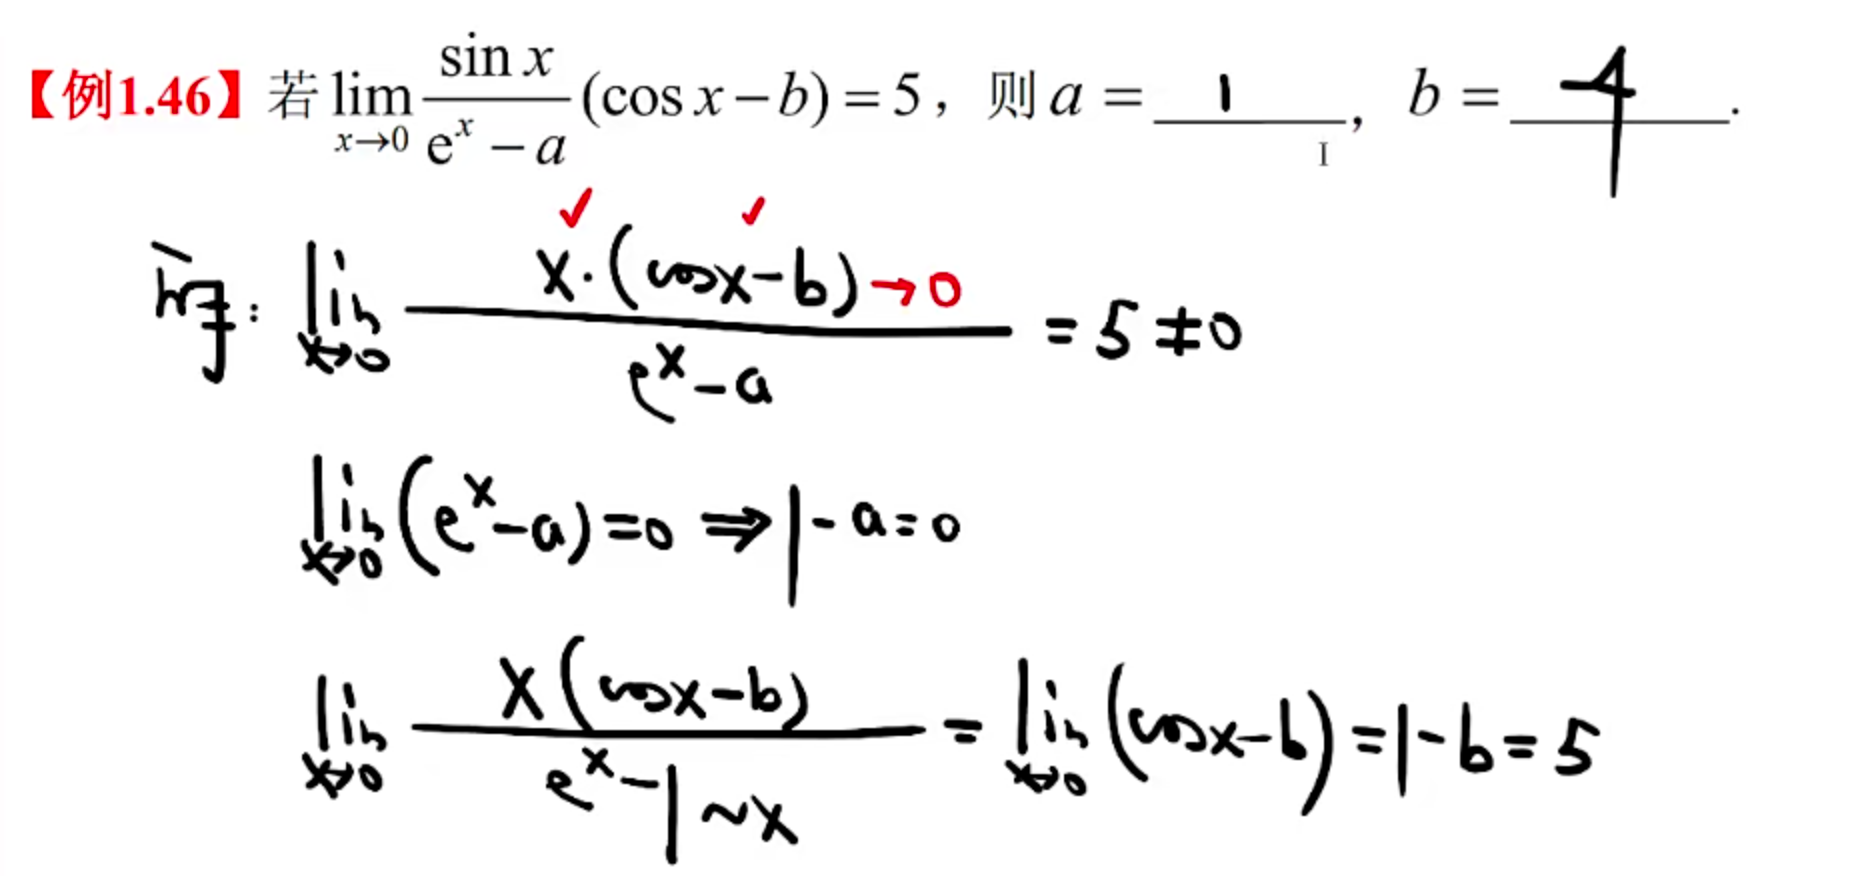 【例1.46】若 lim_{x→0} \frac{sin x}{e^x - a} (cos x - b) = 5，则 a = 1，b = -4.
解: lim_{x→0} \frac{x·(cosx-b)→0}{e^x-a} = 5≠0
lim_{x→0} (e^x-a)=0 ⇒ 1-a=0
lim_{x→0} \frac{x(cosx-b)}{e^x-1~x} = lim_{x→0} (cosx-b) = 1-b = 5